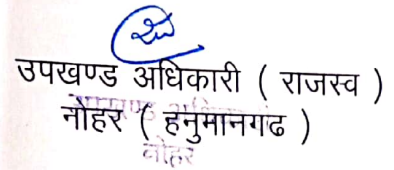 उपखण्ड अधिकारी ( राजस्व )
नौहर ( हनुमानगढ )
नोहर